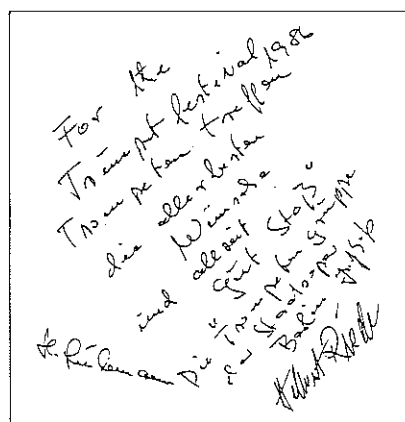 For the
Trumpet festival 1986
Trompeten treffen
die allerbesten
Wünsche
und allzeit
"Gut Stoß"
Die Trompeten Gruppe
der Staatsoper
Berlin